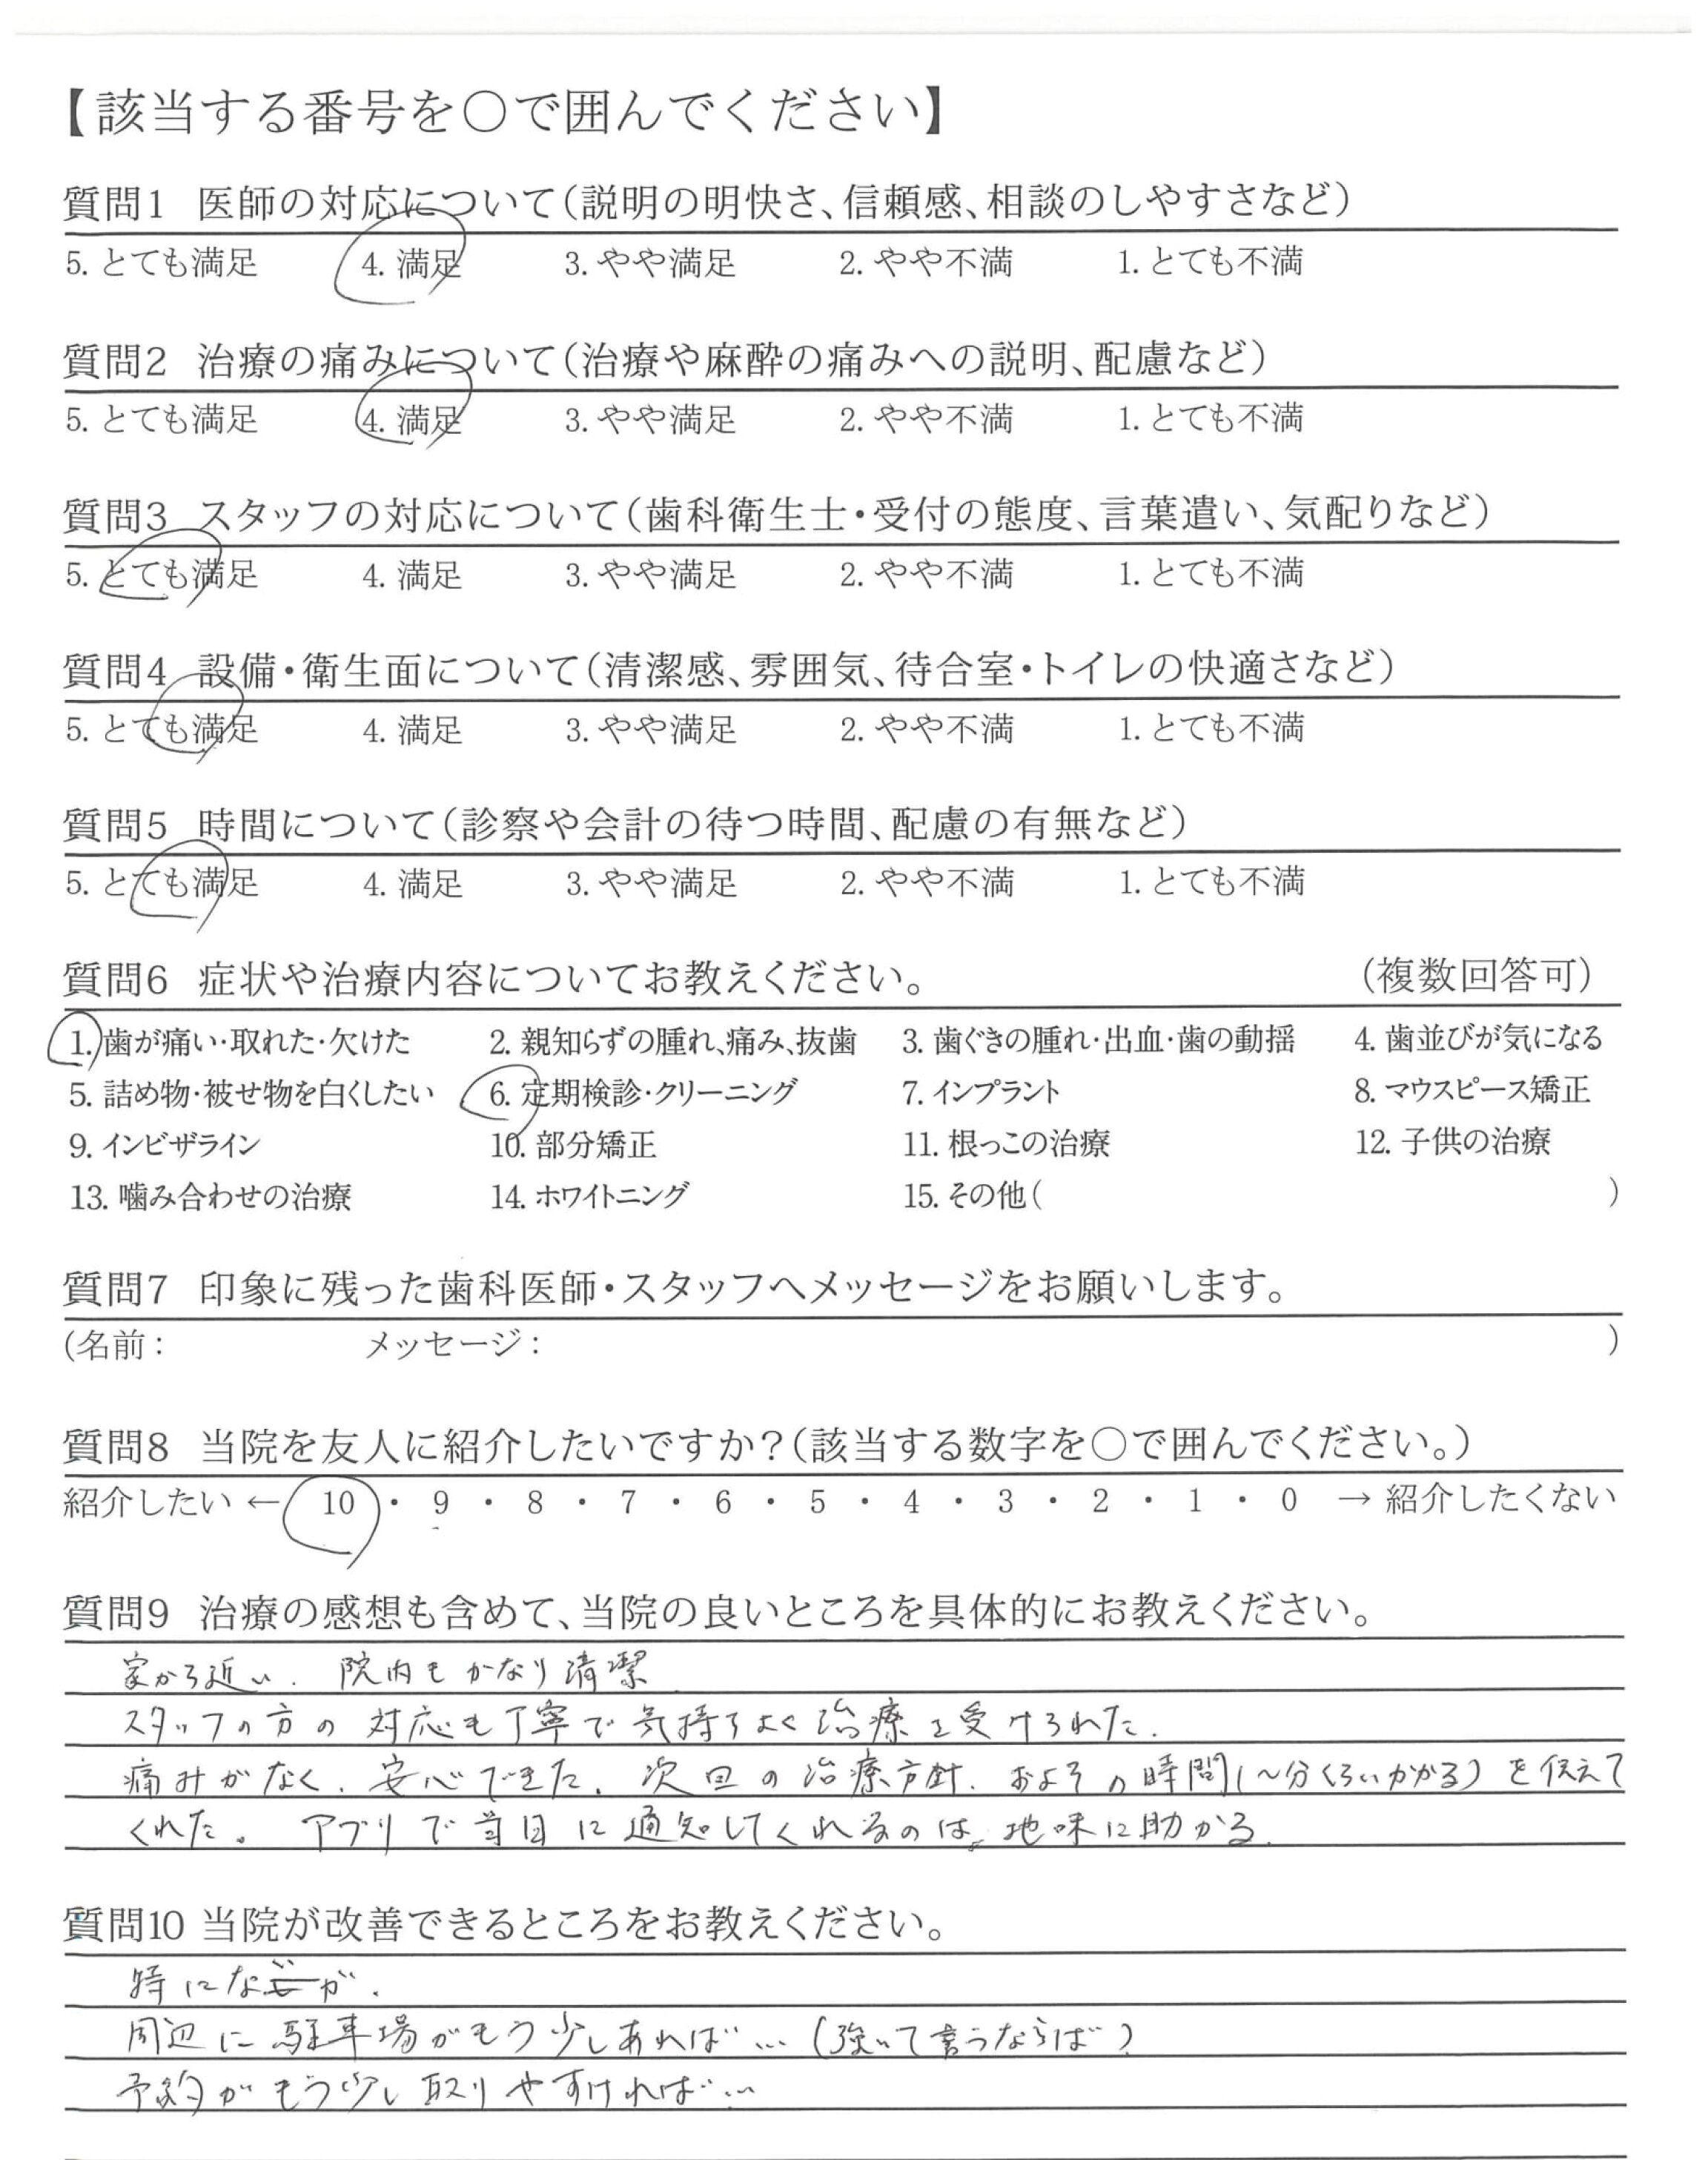 【該当する番号を○で囲んでください】
質問1 医師の対応について(説明の明快さ、信頼感、相談のしやすさなど)
5. とても満足 4. 満足 3. やや満足 2. やや不満 1. とても不満
質問2 治療の痛みについて(治療や麻酔の痛みへの説明、配慮など)
5. とても満足 4. 満足 3. やや満足 2. やや不満 1. とても不満
質問3 スタッフの対応について(歯科衛生士・受付の態度、言葉遣い、気配りなど)
5. とても満足 4. 満足 3. やや満足 2. やや不満 1. とても不満
質問4 設備・衛生面について(清潔感、雰囲気、待合室・トイレの快適さなど)
5. とても満足 4. 満足 3. やや満足 2. やや不満 1. とても不満
質問5 時間について(診察や会計の待つ時間、配慮の有無など)
5. とても満足 4. 満足 3. やや満足 2. やや不満 1. とても不満
質問6 症状や治療内容についてお教えください。 (複数回答可)
1. 歯が痛い・取れた・欠けた 2. 親知らずの腫れ、痛み、抜歯 3. 歯ぐきの腫れ・出血・歯の動揺 4. 歯並びが気になる
5. 詰め物・被せ物を白くしたい 6. 定期検診・クリーニング 7. インプラント 8. マウスピース矯正
9. インビザライン 10. 部分矯正 11. 根っこの治療 12. 子供の治療
13. 噛み合わせの治療 14. ホワイトニング 15. その他( )
質問7 印象に残った歯科医師・スタッフへメッセージをお願いします。
(名前: メッセージ: )
質問8 当院を友人に紹介したいですか?(該当する数字を○で囲んでください。)
紹介したい ← 10 ・ 9 ・ 8 ・ 7 ・ 6 ・ 5 ・ 4 ・ 3 ・ 2 ・ 1 ・ 0 → 紹介したくない
質問9 治療の感想も含めて、当院の良いところを具体的にお教えください。
家から近い. 院内もかなり清潔
スタッフの方の対応も丁寧で気持ちよく治療を受けられた.
痛みがなく、安心できた. 次回の治療方針. およその時間(〜分くらいかかる)を伝えて
くれた。 アプリで当日に通知してくれるのは、地味に助かる.
質問10 当院が改善できるところをお教えください。
特にないが.
周辺に駐車場がもう少しあれば…(強いて言うならば)
予約がもう少し取りやすければ…